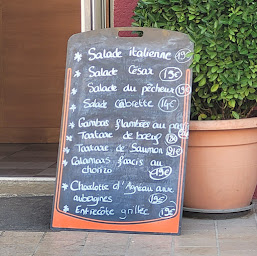 Salade italienne
Salade César 17€
Salade du pêcheur 19€
Salade Cabrette 14€
Gambas flambées au pastis
Tartare de bœuf
Tartare de Saumon 21€
Calamars farcis au
chorizo 19€
Charlotte d'Agneau aux
aubergines 19€
Entrecôte grillée 19€